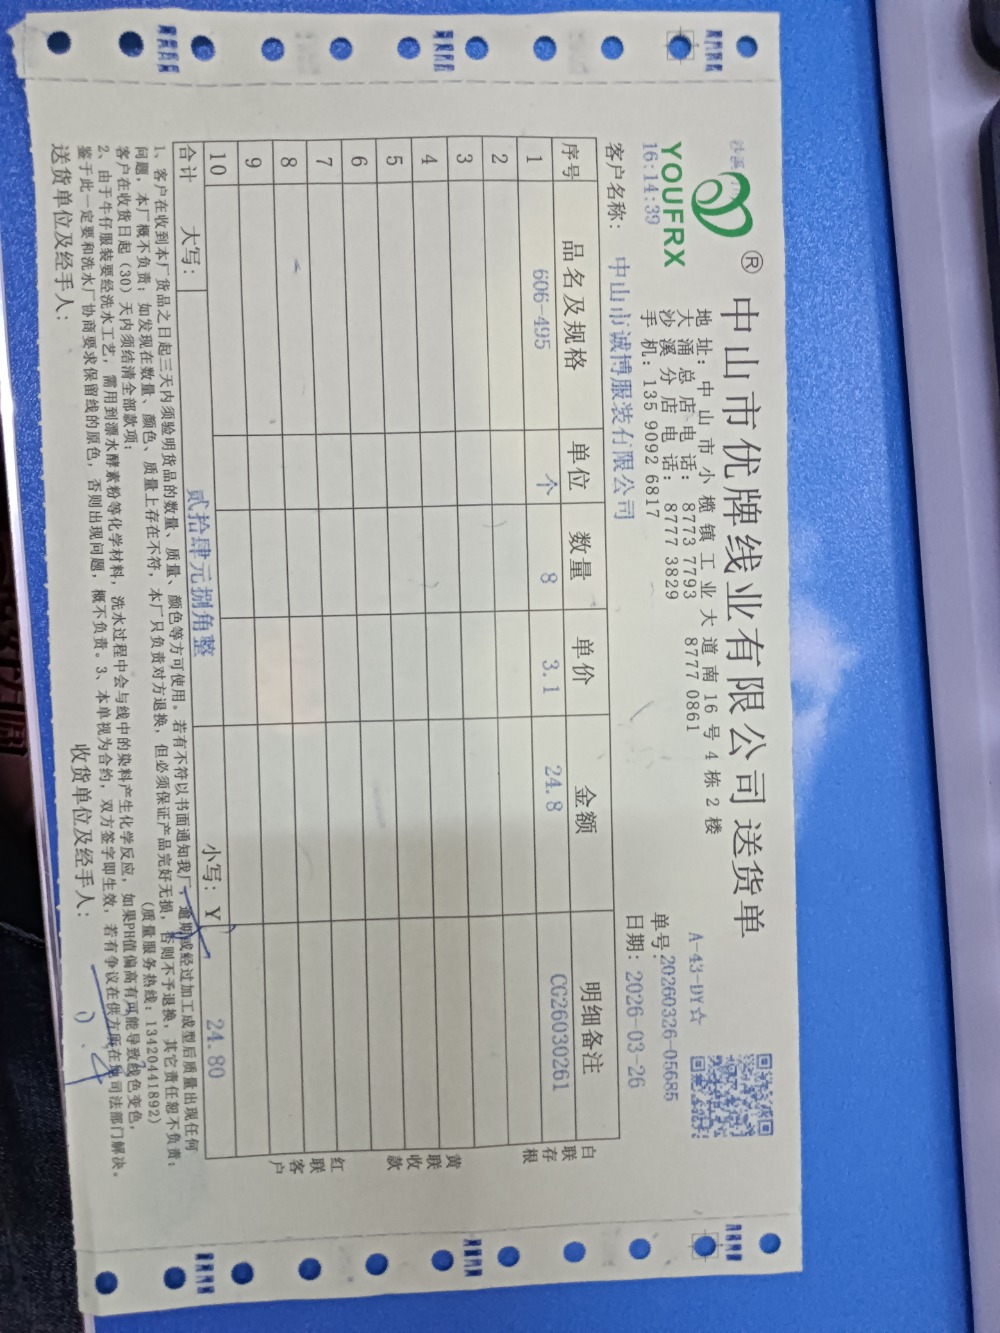 YOUFRX
16:14:39
®
中山市优牌线业有限公司送货单
地址：中山市小榄镇工业大道南16号4栋2楼
大涌总店电话：8773 7793 8777 0861
沙溪分店电话：8777 3829
手机：135 9092 6817
A-43-DY☆
单号：20260326-05685
日期：2026-03-26
客户名称：中山市诚博服装有限公司
序号 品名及规格 单位 数量 单价 金额 明细备注
1 606-495 个 8 3.1 24.8 CG26030261
2
3
4
5
6
7
8
9
10
合计 大写：贰拾肆元捌角整 小写：Y 24.80
白联存根
黄联收款
红联客户
1、客户在收到本厂货品之日起三天内须验明货品的数量、质量、颜色等方可使用。若有不符以书面通知我厂，逾期或经过加工成型后质量出现任何
问题，本厂概不负责；如发现在数量、颜色、质量上存在不符，本厂只负责对方退换，但必须保证产品完好无损，否则不予退换，其它责任恕不负责；
客户在收货日起（30）天内须结清全部款项； （质量服务热线：13420441892）
2、由于牛仔服装要经洗水工艺，需用到漂水酵素粉等化学材料，洗水过程中会与线中的染料产生化学反应，如果PH值偏高有可能导致线色变色，
鉴于此一定要和洗水厂协商要求保留线的原色，否则出现问题，概不负责。3、本单视为合约，双方签字即生效，若有争议在供方所在地司法部门解决。
送货单位及经手人： 收货单位及经手人：